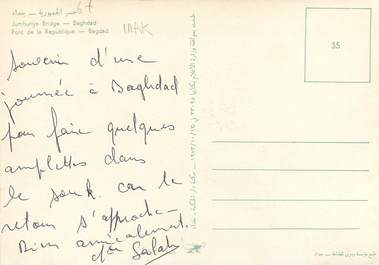 جسر الجمهورية — بغداد
Jumhuriye Bridge — Baghdad
Pont de la Republique — Bagdad
67
IRAK
35
Souvenir d'une
journée à Baghdad
pour faire quelques
amplettes dans
le souk. car le
retour s'approche —
Bien amicalement.
Salah